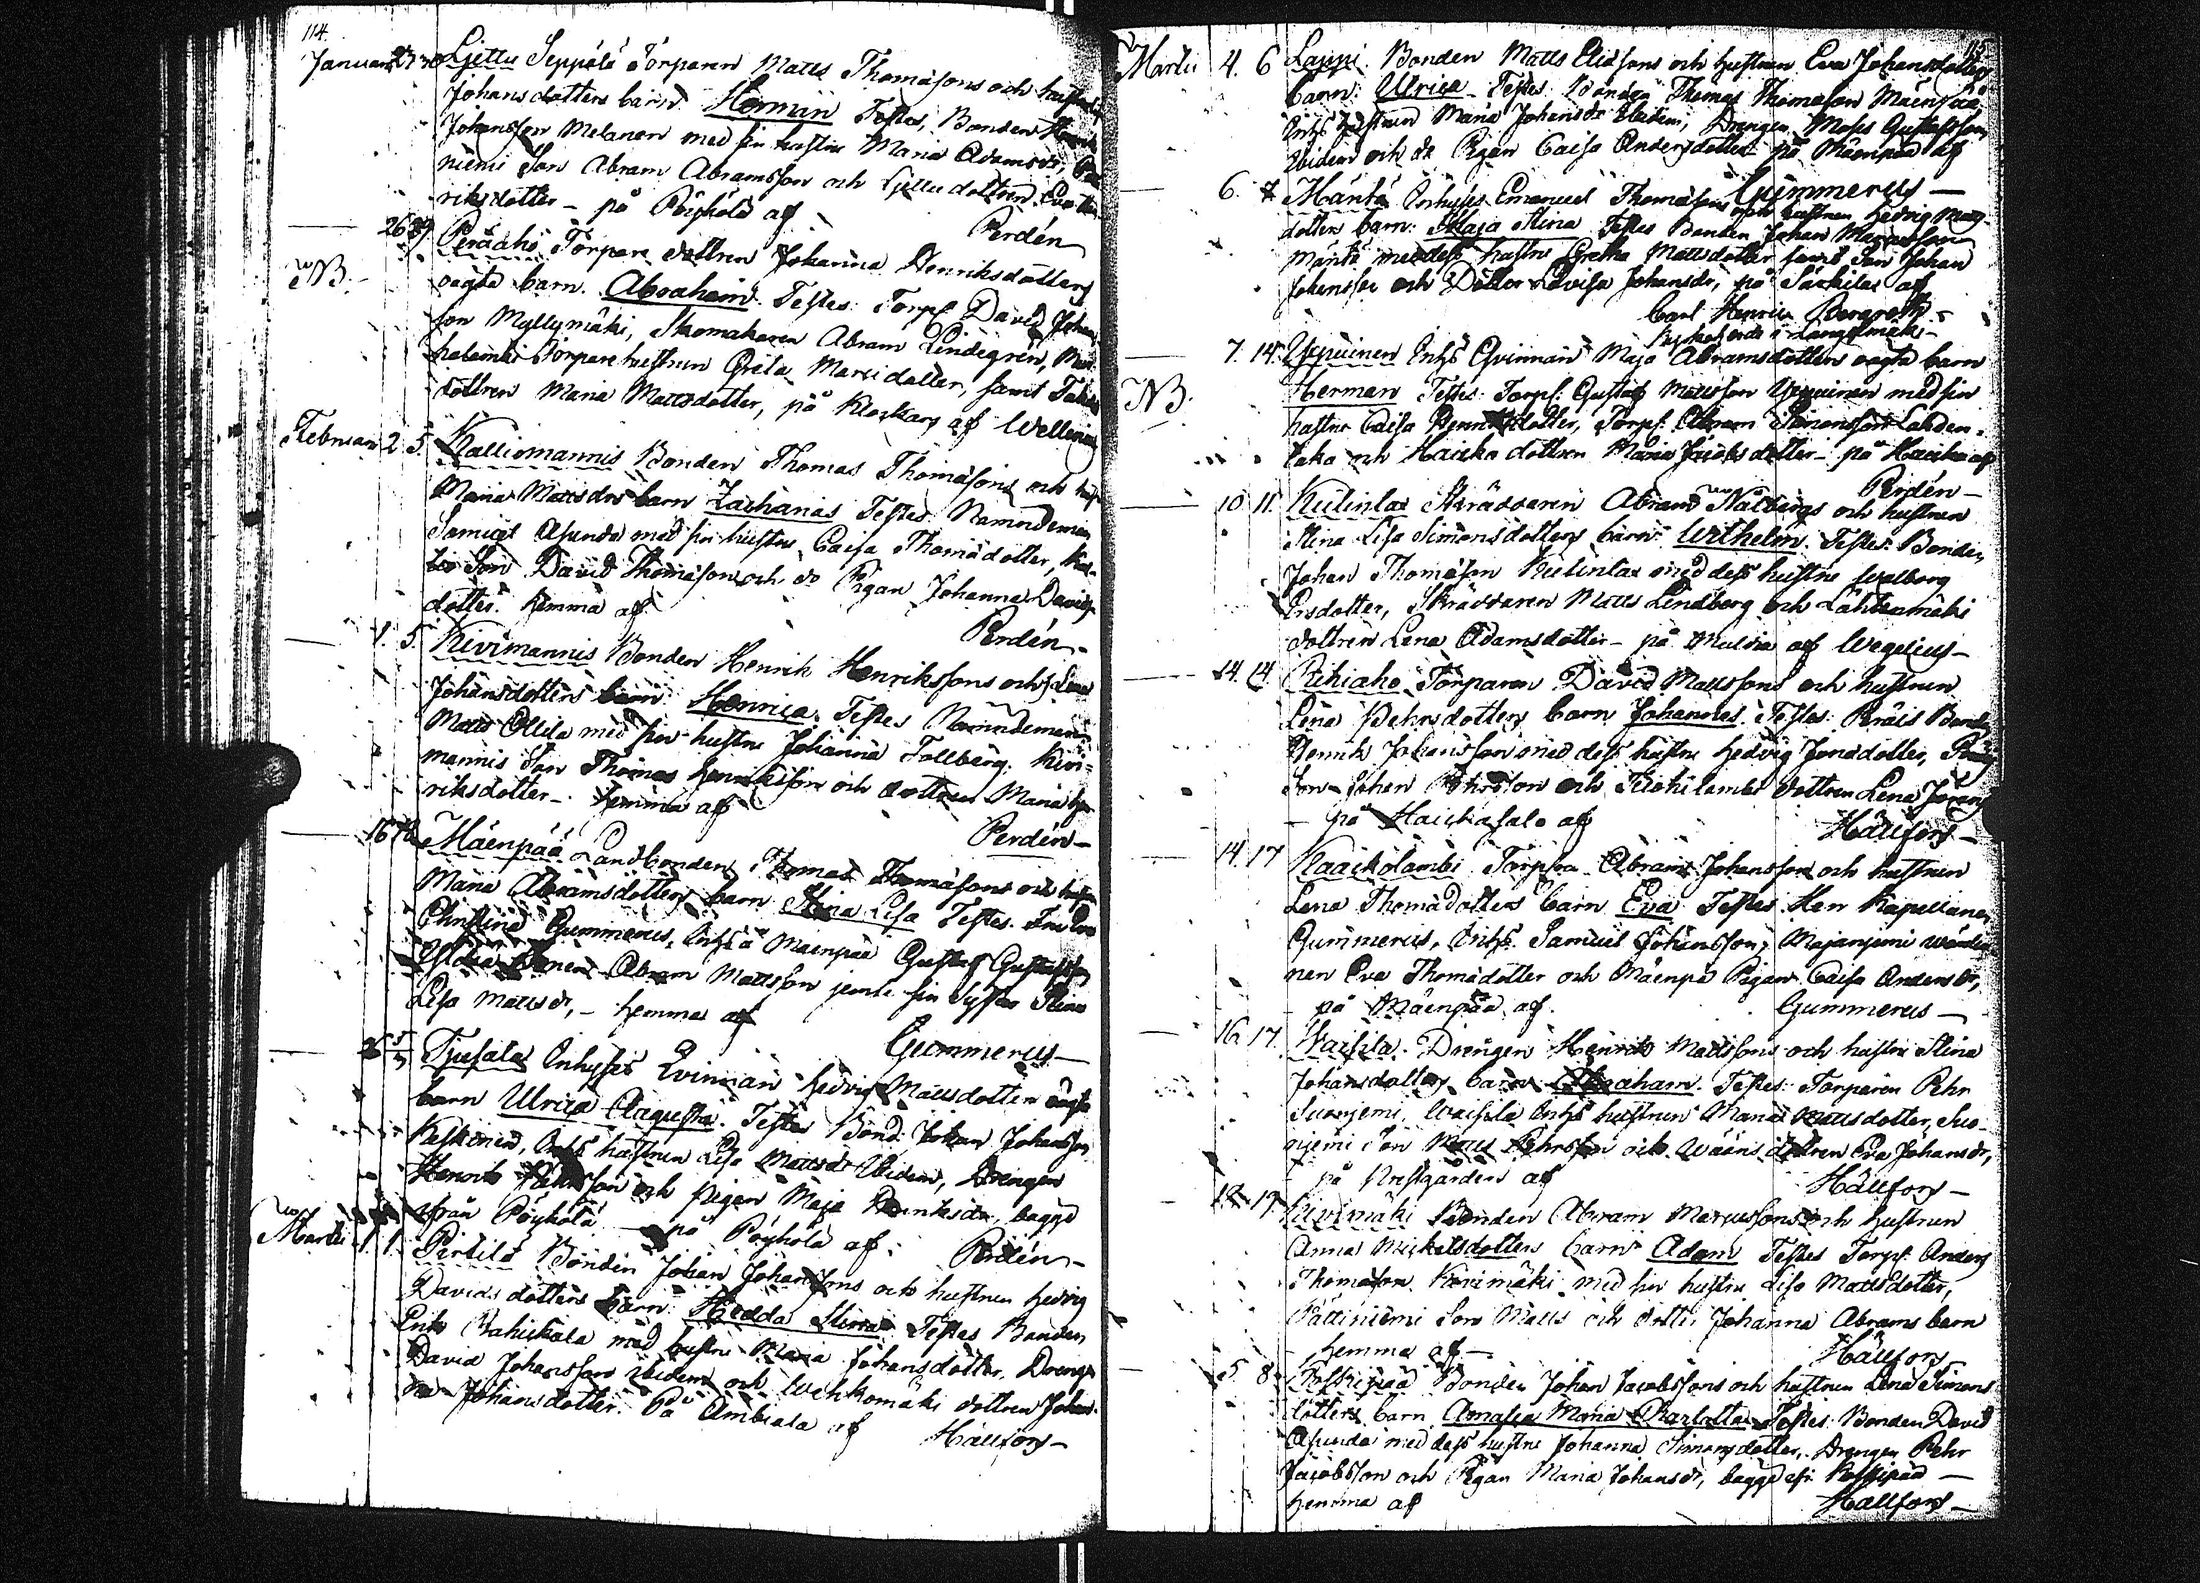 114.
Januari 27 30 Ljettu Seppälä Torparen Matts Thomasons och hustrun
Johansdotters barn Herman Testes, Bonden Henrik
Johansson Melanen med sin hustru Maria Adamsdr,
niemi Son Abram Abramsson och Ljettu dottren Eva
riksdotter - på Pöyhölä af
Perdén
26 Peräaho Torpare dottren Johanna Henriksdotters
NB. oägta barn. Abraham. Testes: Torp. David Johans
son Myllymäki, Skomakaren Abram Lindegren,
halambi Torpare hustrun Greta Marci dotter, samt
dottren Maria Mattsdotter, på Klockars af Wellenius
Februari 2 5. Kalliomannis Bonden Thomas Thomasons och
Maria Mattsdrs barn Zacharias Testes Nämndeman
Samuel Asunda med sin hustru Caisa Thomädotter,
Son David Thomason och do Pigan Johanna Davids
dotter. hemma af
Perdén -
1. 5. Kivimannis Bonden Henrik Henrikssons och Lena
Johansdotters barn: Henrica. Testes Nämndeman
Matts Ollila med sin hustru Johanna Tollberg. Kivi=
mannis Son Thomas Henriksson och dottren Maria Hen
riksdotter - hemma af
Perdén -
16 Mäenpää Landbonden Thomas Thomasons och hustr
Maria Abramsdotters barn Stina Lisa Testes. Fru Eva
Christina Gummerus, Inhs å Mäenpää Gustaf Gustafsson
Abram Mattsson jemte sin Syster Stina
Lisa Mattsdr, - hemma af
Gummerus -
Tjusala Inhyses Qvinnan Hedvig Mattsdotters oägta
barn Ulrica Augusta. Testes Bond. Johan Johansson
Keskinen, Inhs hustrun Lisa Mattsdr Ibidem, Drengen
Henrik och pigan Maja Henriksdr, bägge
från Pöyhölä - på Pöyhölä af. Perdén -
Martii 1 1. Pertilä Bonden Johan Johanssons och hustrun Hedvig
Davids dotters barn: Hedda Stina Testes Bonden
Erik Rahiskala med hustru Maria Johansdotter. Dreng
David Johansson ibidem och Wehkomäki dottren Johan-
na Johansdotter. På Ambiala af
Hällfors -
115
Martii 4. 6 Lappi. Bonden Matts Eliæsons och hustrun Eva Johansdotters
barn: Ulrica - Testes: Bonden Thomas Thomason Mäenpää
Inhs hustrun Maria Johansdr Ibidem, Drengen Mats Gustafsson
Ibidem och do Pigan Caisa Andersdotter på Mäenpää af
Gummerus -
6. 7 Mänttä Inhyses Emanuel Thomasons och hustrun Hedvig Matts
dotters barn: Maja Stina Testes Bonden Johan
Mänttä med dess hustru Gretha Mattsdotter samt Son Johan
Johansson och Dotter Lovisa Johansdr, på Särkilax af
Carl Henric Bergroth -
i Längelmäki -
7. 14. Yijninen Inhs Qvinnan Maja Abramsdotters oägta barn
NB. Herman Testes: Torp. Gustaf Mattsson med sin
hustru Caisa Henriksdotter, Torp. Abram Simonsson Lahden=
taka och Hauho dottren Maria Jacobsdotter - på Hauho af
Perdén -
10 11. Kielinlax Skräddaren Abram Nätbergs och hustrun
Stina Lisa Simonsdotters barn: Wilhelm. Testes Bonden
Johan Thomason Kielinlax med dess hustru Walborg
Ersdotter, Skräddaren Matts Lindberg och Lähtemäki
dottren Lena Adamsdotter - på Mulvia af Wegelius -
14. 14. Rihiaho Torparen David Mattssons och hustrun
Lena Pehrsdotters barn Johannes. Testes: Peräis Bonden
Henrik Johansson med dess hustru Hedvig Jonsdotter,
Son Johan Pehrsson och dottren Lena
på Haickasalo af
Hällfors -
14. 17 Kaackolambi Torp. Abram Johansson och hustrun
Lena Thomädotters barn Eva Testes Herr Kapellanen
Gummerus, Inhs. Samuel Johansson, Majaniemi
nan Eva Thomädotter och Mäenpä Pigan Caisa Andersdr,
på Mäenpää af.
Gummerus -
16. 17. Waisila. Drengen Henrik Mattssons och hustru Stina
Johansdotters barn Abraham. Testes: Torparen Pehr
Suoniemi, Waisila Inhs hustrun Maria Mattsdotter, Suo-
niemi Son Matts Pehrsson och dottren Eva Johansdr,
på Prestgården af
Hällfors -
12. 19. Bonden Abram Marcussons och hustrun
Anna Mickelsdotters barn Adam Testes Torp. Anders
Thomason Kerimäki med sin hustru Lisa Mattsdotter,
Pättiniemi Son Matts och dotter Johanna Abrams barn
hemma af -
Hällfors
5 8 Koskipää Bonden Johan Jacobssons och hustrun Lena Simons
dotters barn Amalia Maria Charlotta Testes: Bonden David
Asunda med dess hustru Johanna Simonsdotter, Drengen Pehr
Jacobsson och Pigan Maria Johansdr, bägge ifr. Koskipää -
hemma af
Hällfors -